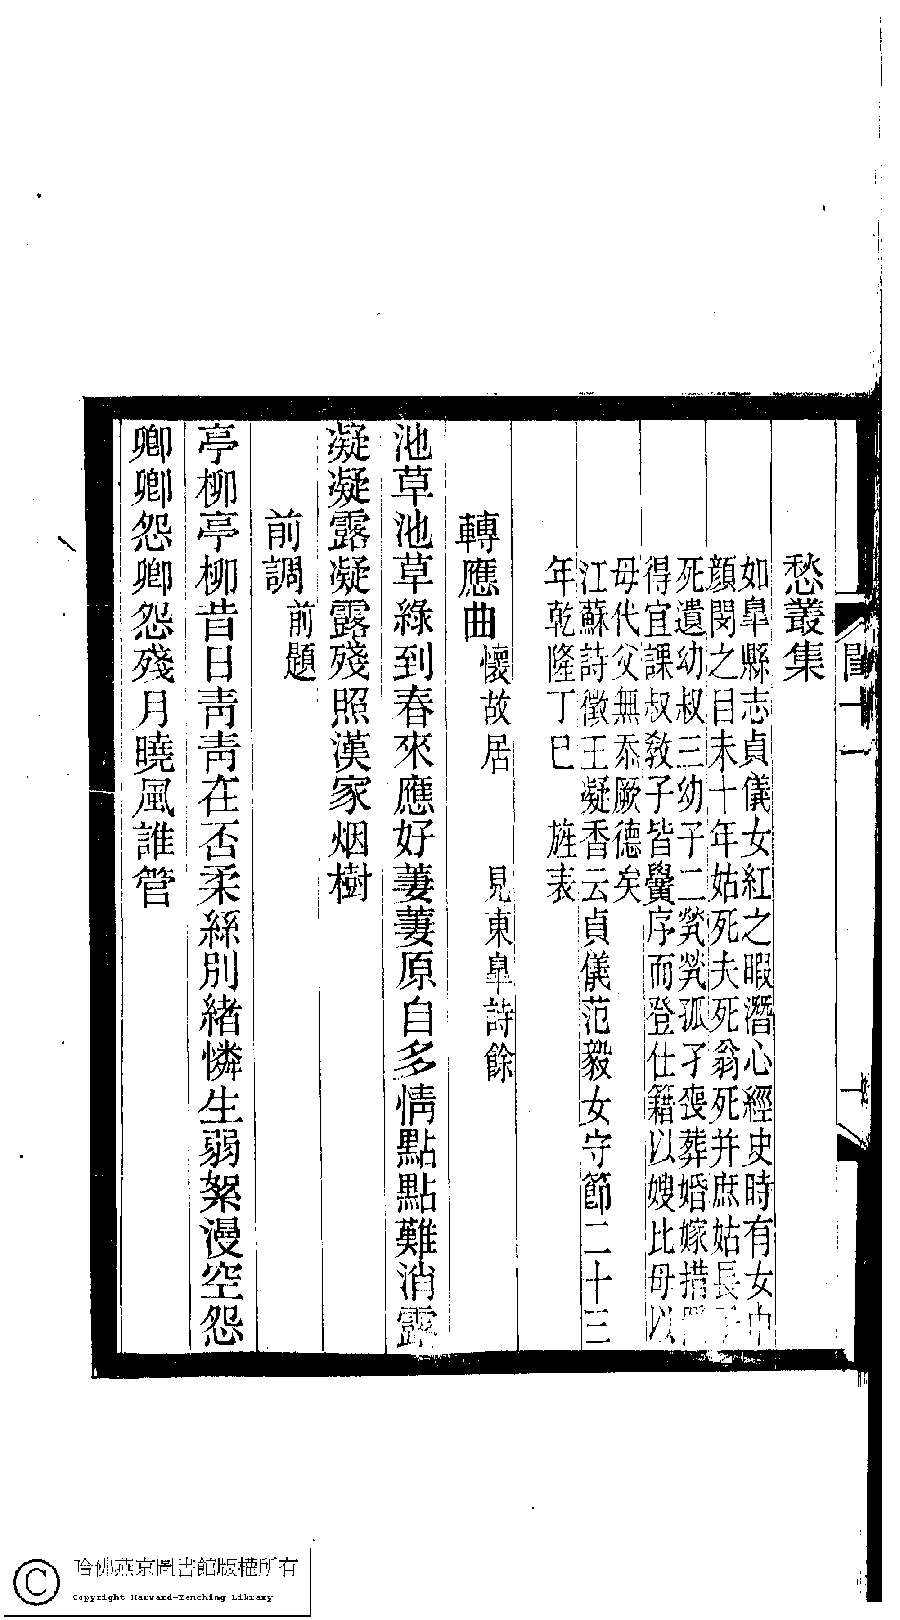 愁叢集
如皐縣志貞儀女紅之暇潛心經史時有女中
顔閔之目未十年姑死夫死翁死并庶姑長
死遺幼叔三幼子二煢煢孤孑喪葬婚嫁措
得宜課叔敎子皆黌序而登仕籍以嫂比母以
母代父無忝厥德矣
江蘇詩徵王凝香云貞儀范毅女守節二十三
年乾隆丁巳　旌表
轉應曲　懷故居　見東皐詩餘
池草池草綠到春來應好萋萋原自多情點點難消露
凝凝露凝露殘照漢家烟樹
前調　前題
亭柳亭柳昔日靑靑在否柔絲別緖憐生弱絮漫空怨
卿卿怨卿怨殘月曉風誰管
哈佛燕京圖書館版權所有
Copyright Harvard-Yenching Library